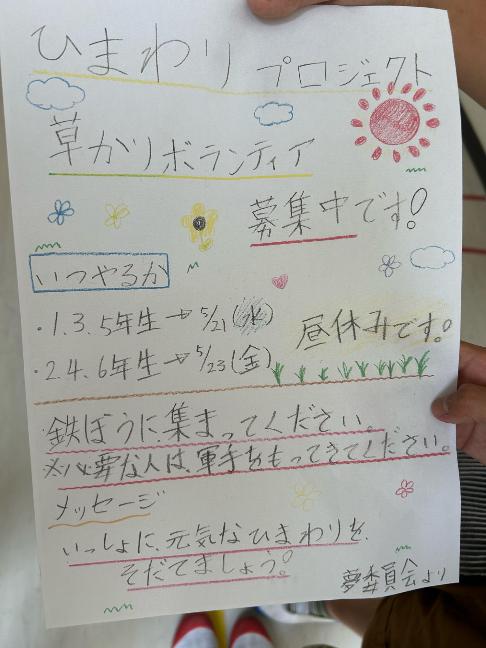 ひまわり プロジェクト
草かりボランティア
募集中です!
いつやるか
・1.3.5年生→5/21(水)
・2.4.6年生→5/23(金)
昼休みです。
鉄ぼうに、集まってください。
※必要な人は、軍手をもってきてください。
メッセージ
いっしょに、元気なひまわりを、
そだてましょう!
夢委員会より